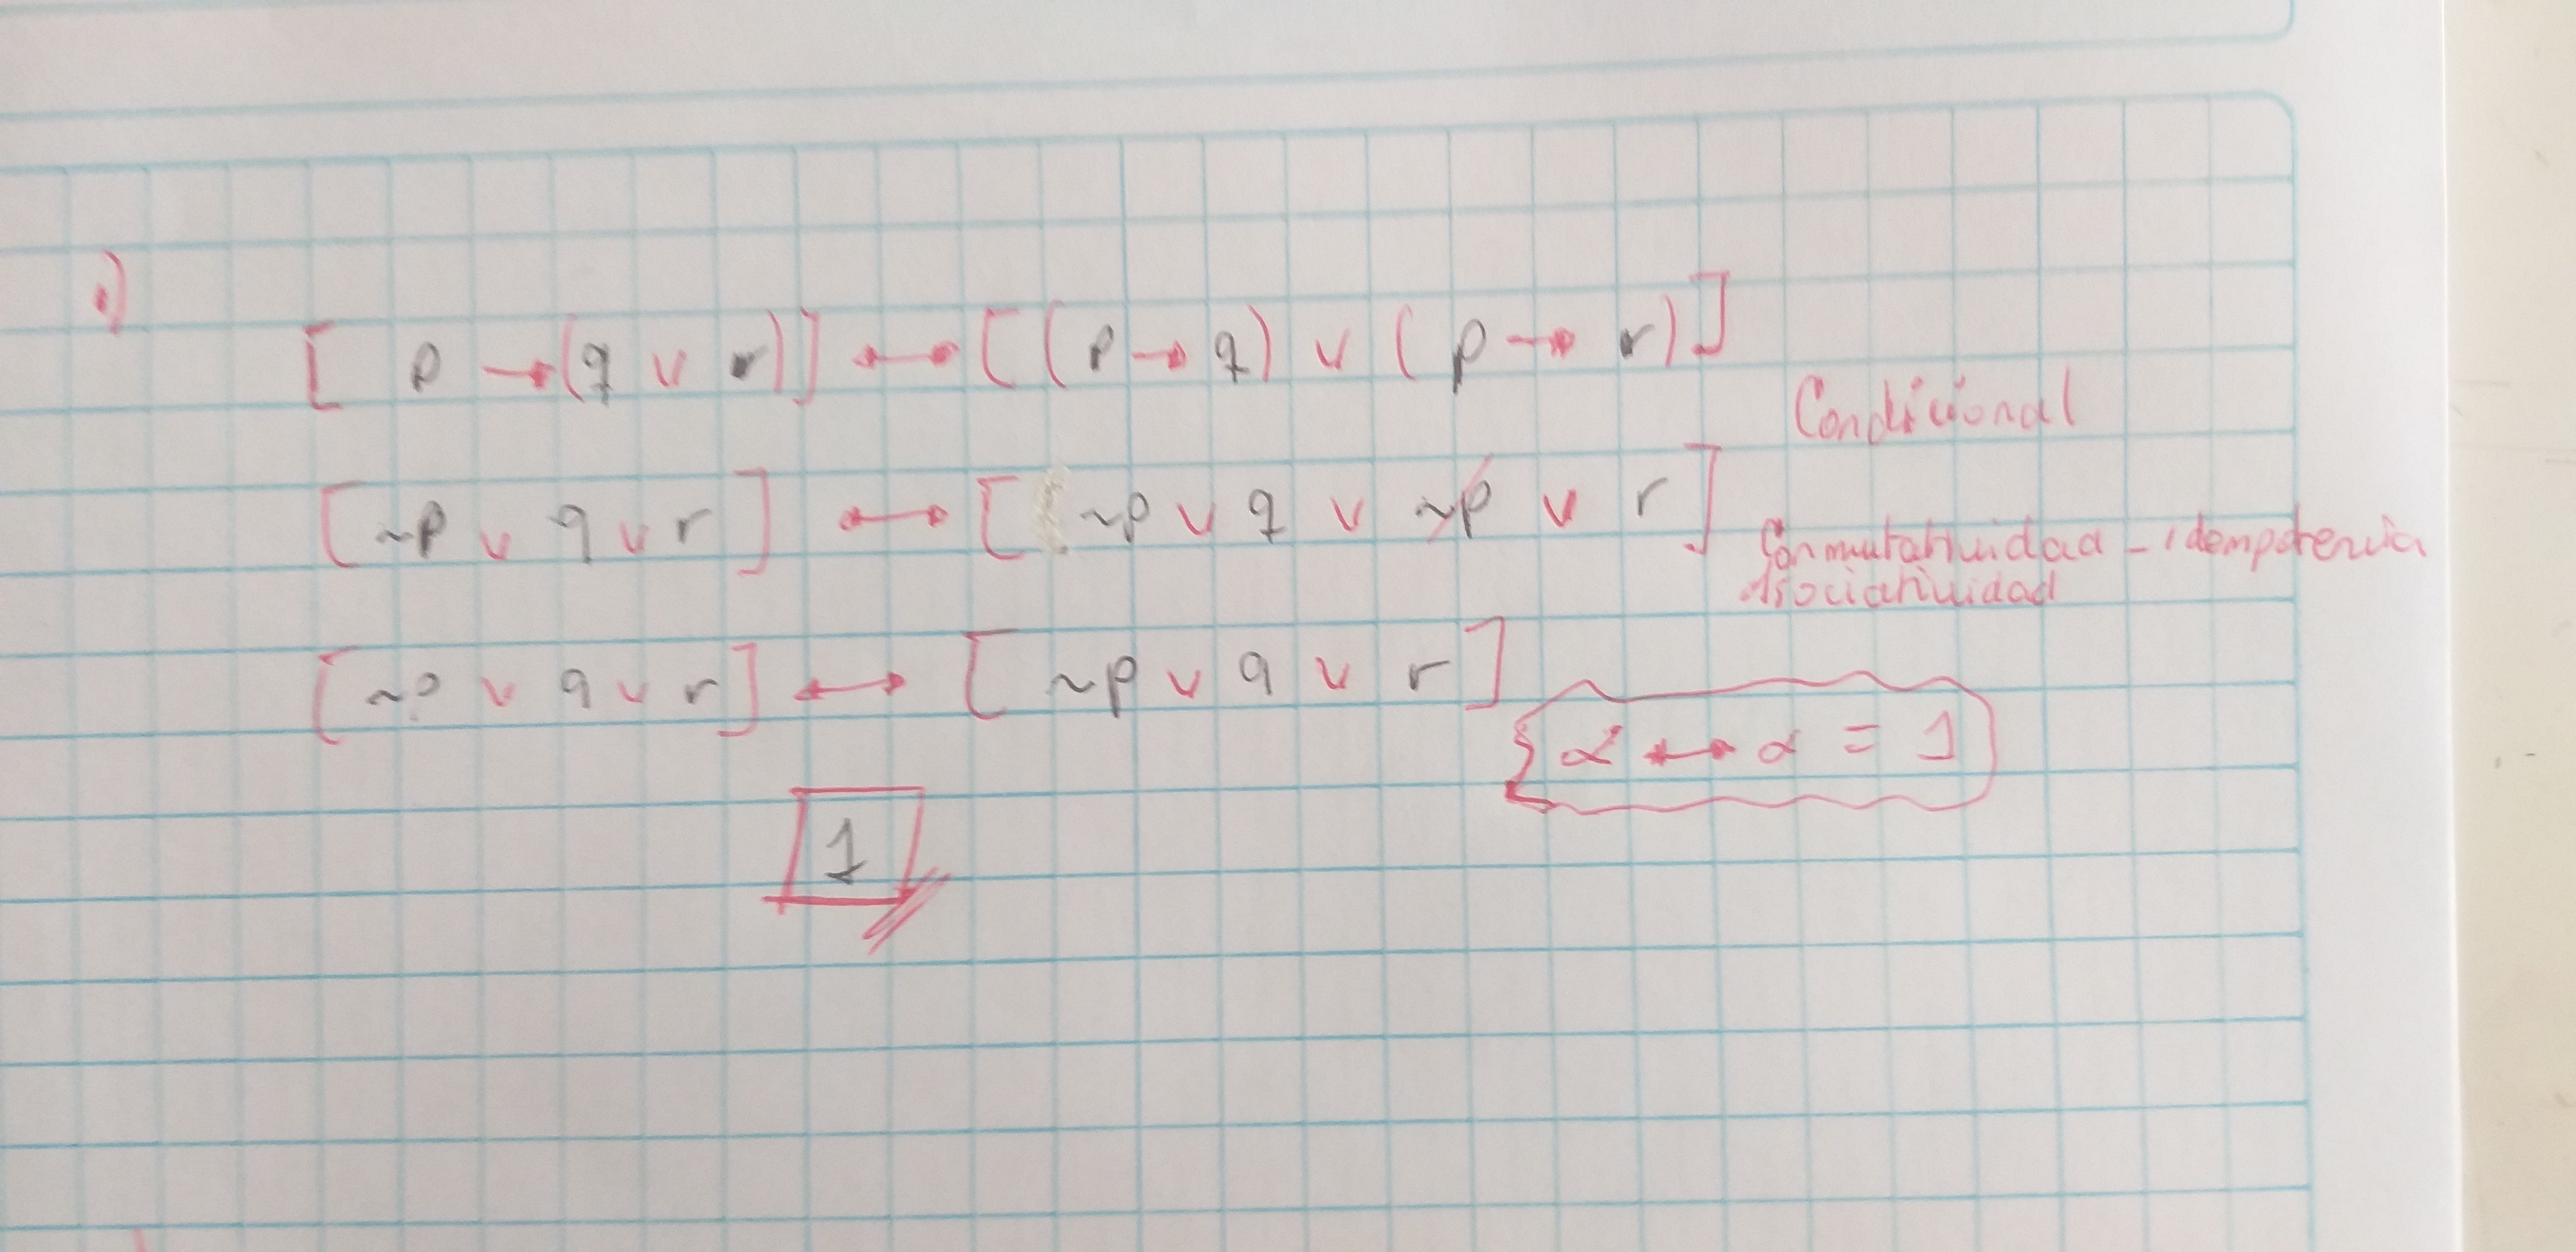 1)
[ p → (q ∨ r)] ↔ [(p → q) ∨ (p → r)]
Condicional
[~p ∨ q ∨ r] ↔ [ ~p ∨ q ∨ ~p ∨ r]
Conmutatividad - idempotencia
Asociatividad
[~p ∨ q ∨ r] ↔ [ ~p ∨ q ∨ r]
α ↔ α = 1
1